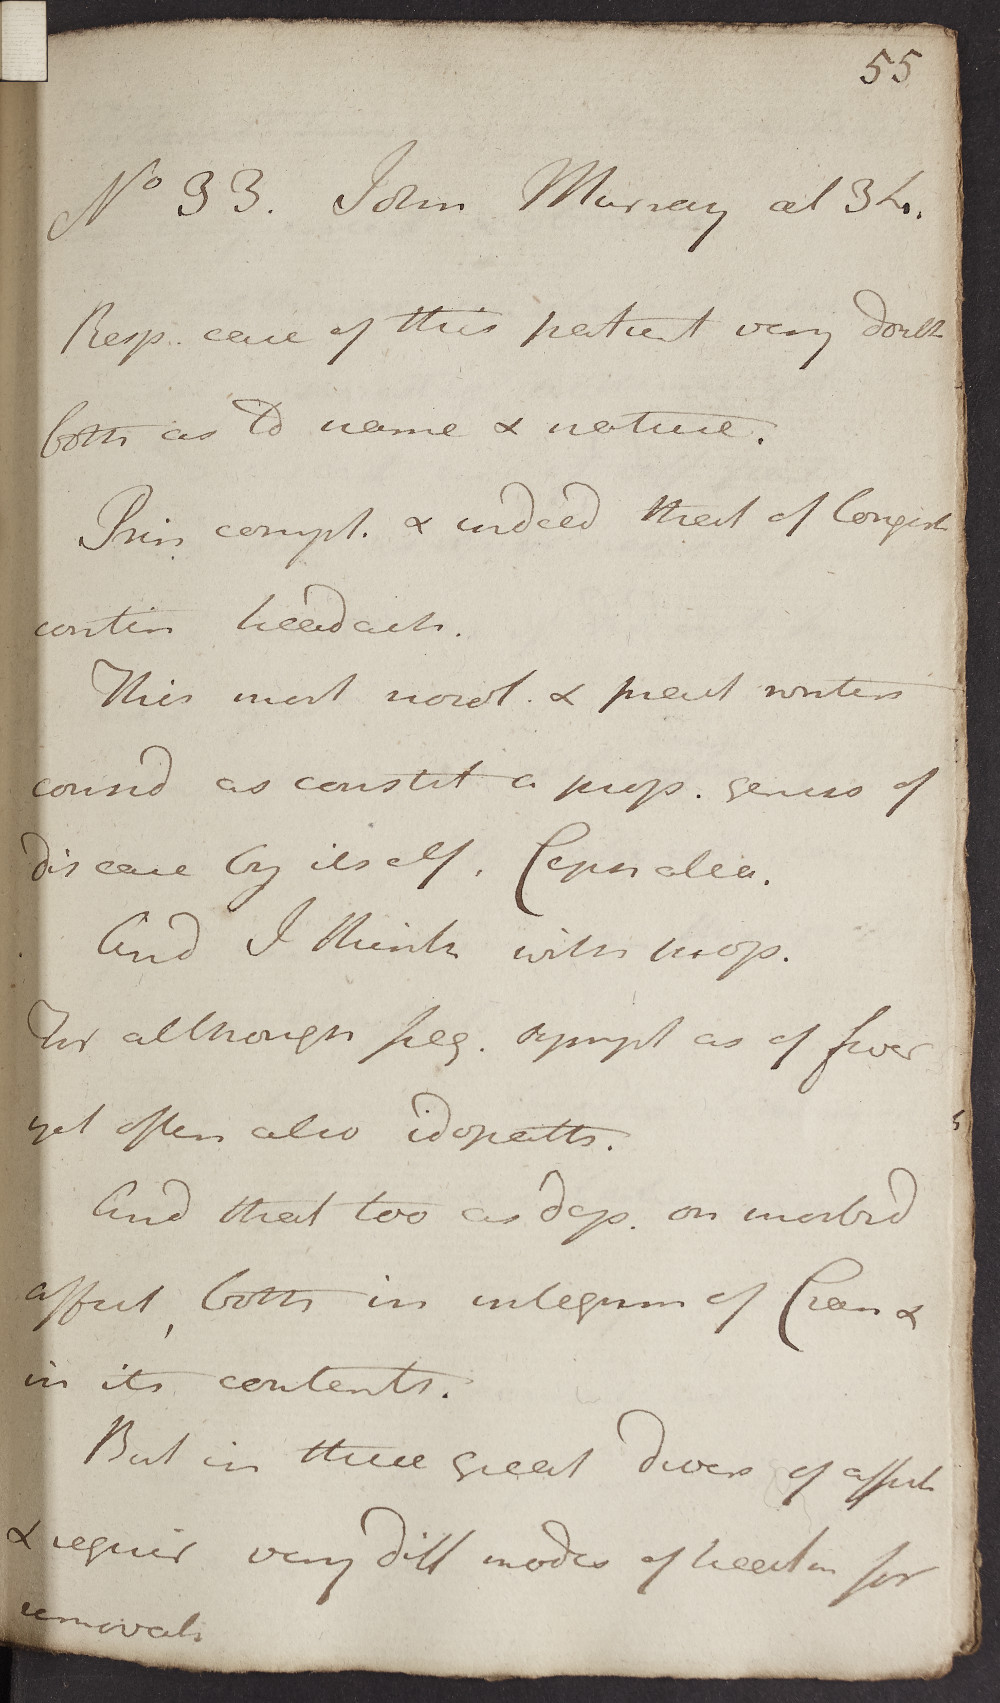 55
No 33. John Murray æt 34.
Resp. case of this patient very doubt
both as to name & nature.
Prin compt. & indeed that of longest
contin headach.
This most nosol. & pract writers
consid as constit a prop. genus of
disease by itself. Cephalea.
And I think with prop.
For although freq. sympt as of fever
yet often also idopath.
And that too as dep. on morbid
affect, both in integum of Cran &
in its contents.
But in these great divers of affect
& requir very diff modes of treatm for
removal